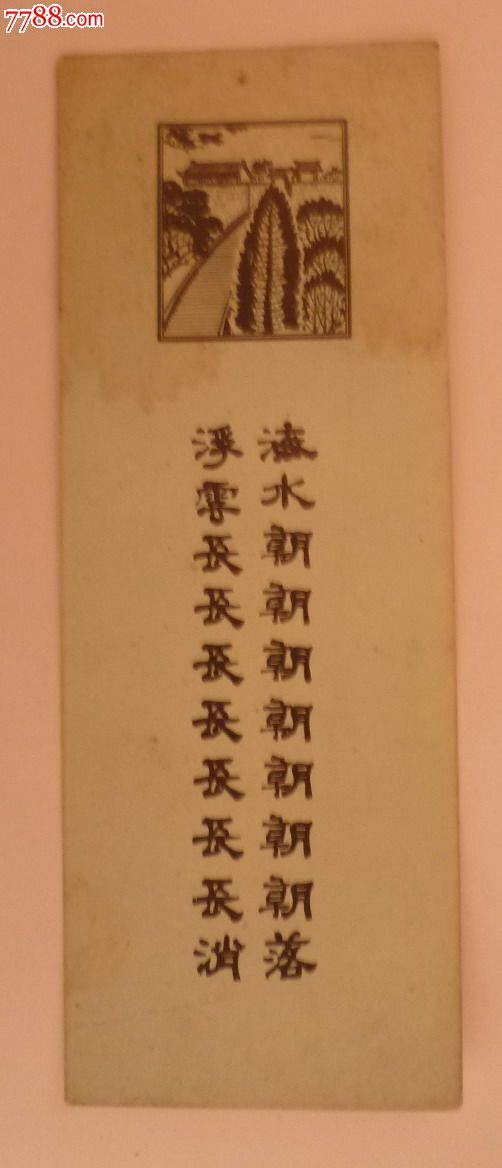 7788.com
海水朝朝朝朝朝朝朝落
浮雲長長長長長長長消